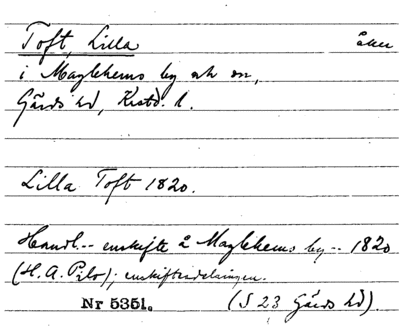 Toft, Lilla åker
i Maglehems by och sn,
Gärds hd, Krstd. l.
Lilla Toft 1820.
Handl.-- enskifte å Maglehems by -- 1820
(H. A. ); enskiftesdelningen.
Nr 5351. (S 23 Gärds hd).